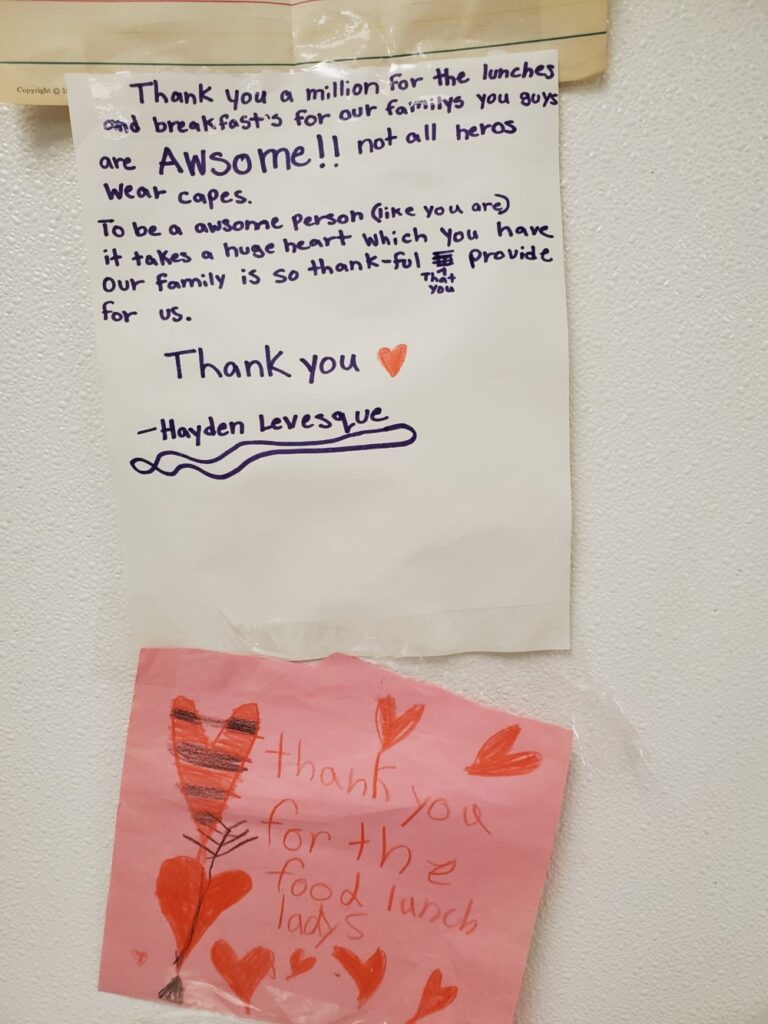 Copyright ©
Thank you a million for the lunches
and breakfast's for our familys you guys
are AWsome!! not all heros
wear capes.
To be a awsome person (like you are)
it takes a huge heart which you have
Our family is so thank-ful That you provide
for us.
Thank you
-Hayden Levesque
thank you
for the
food lunch
ladys